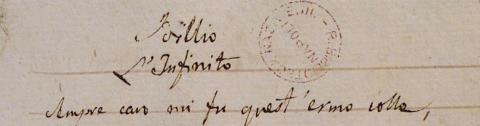 Idillio
L'Infinito
Sempre caro mi fu quest'ermo colle,